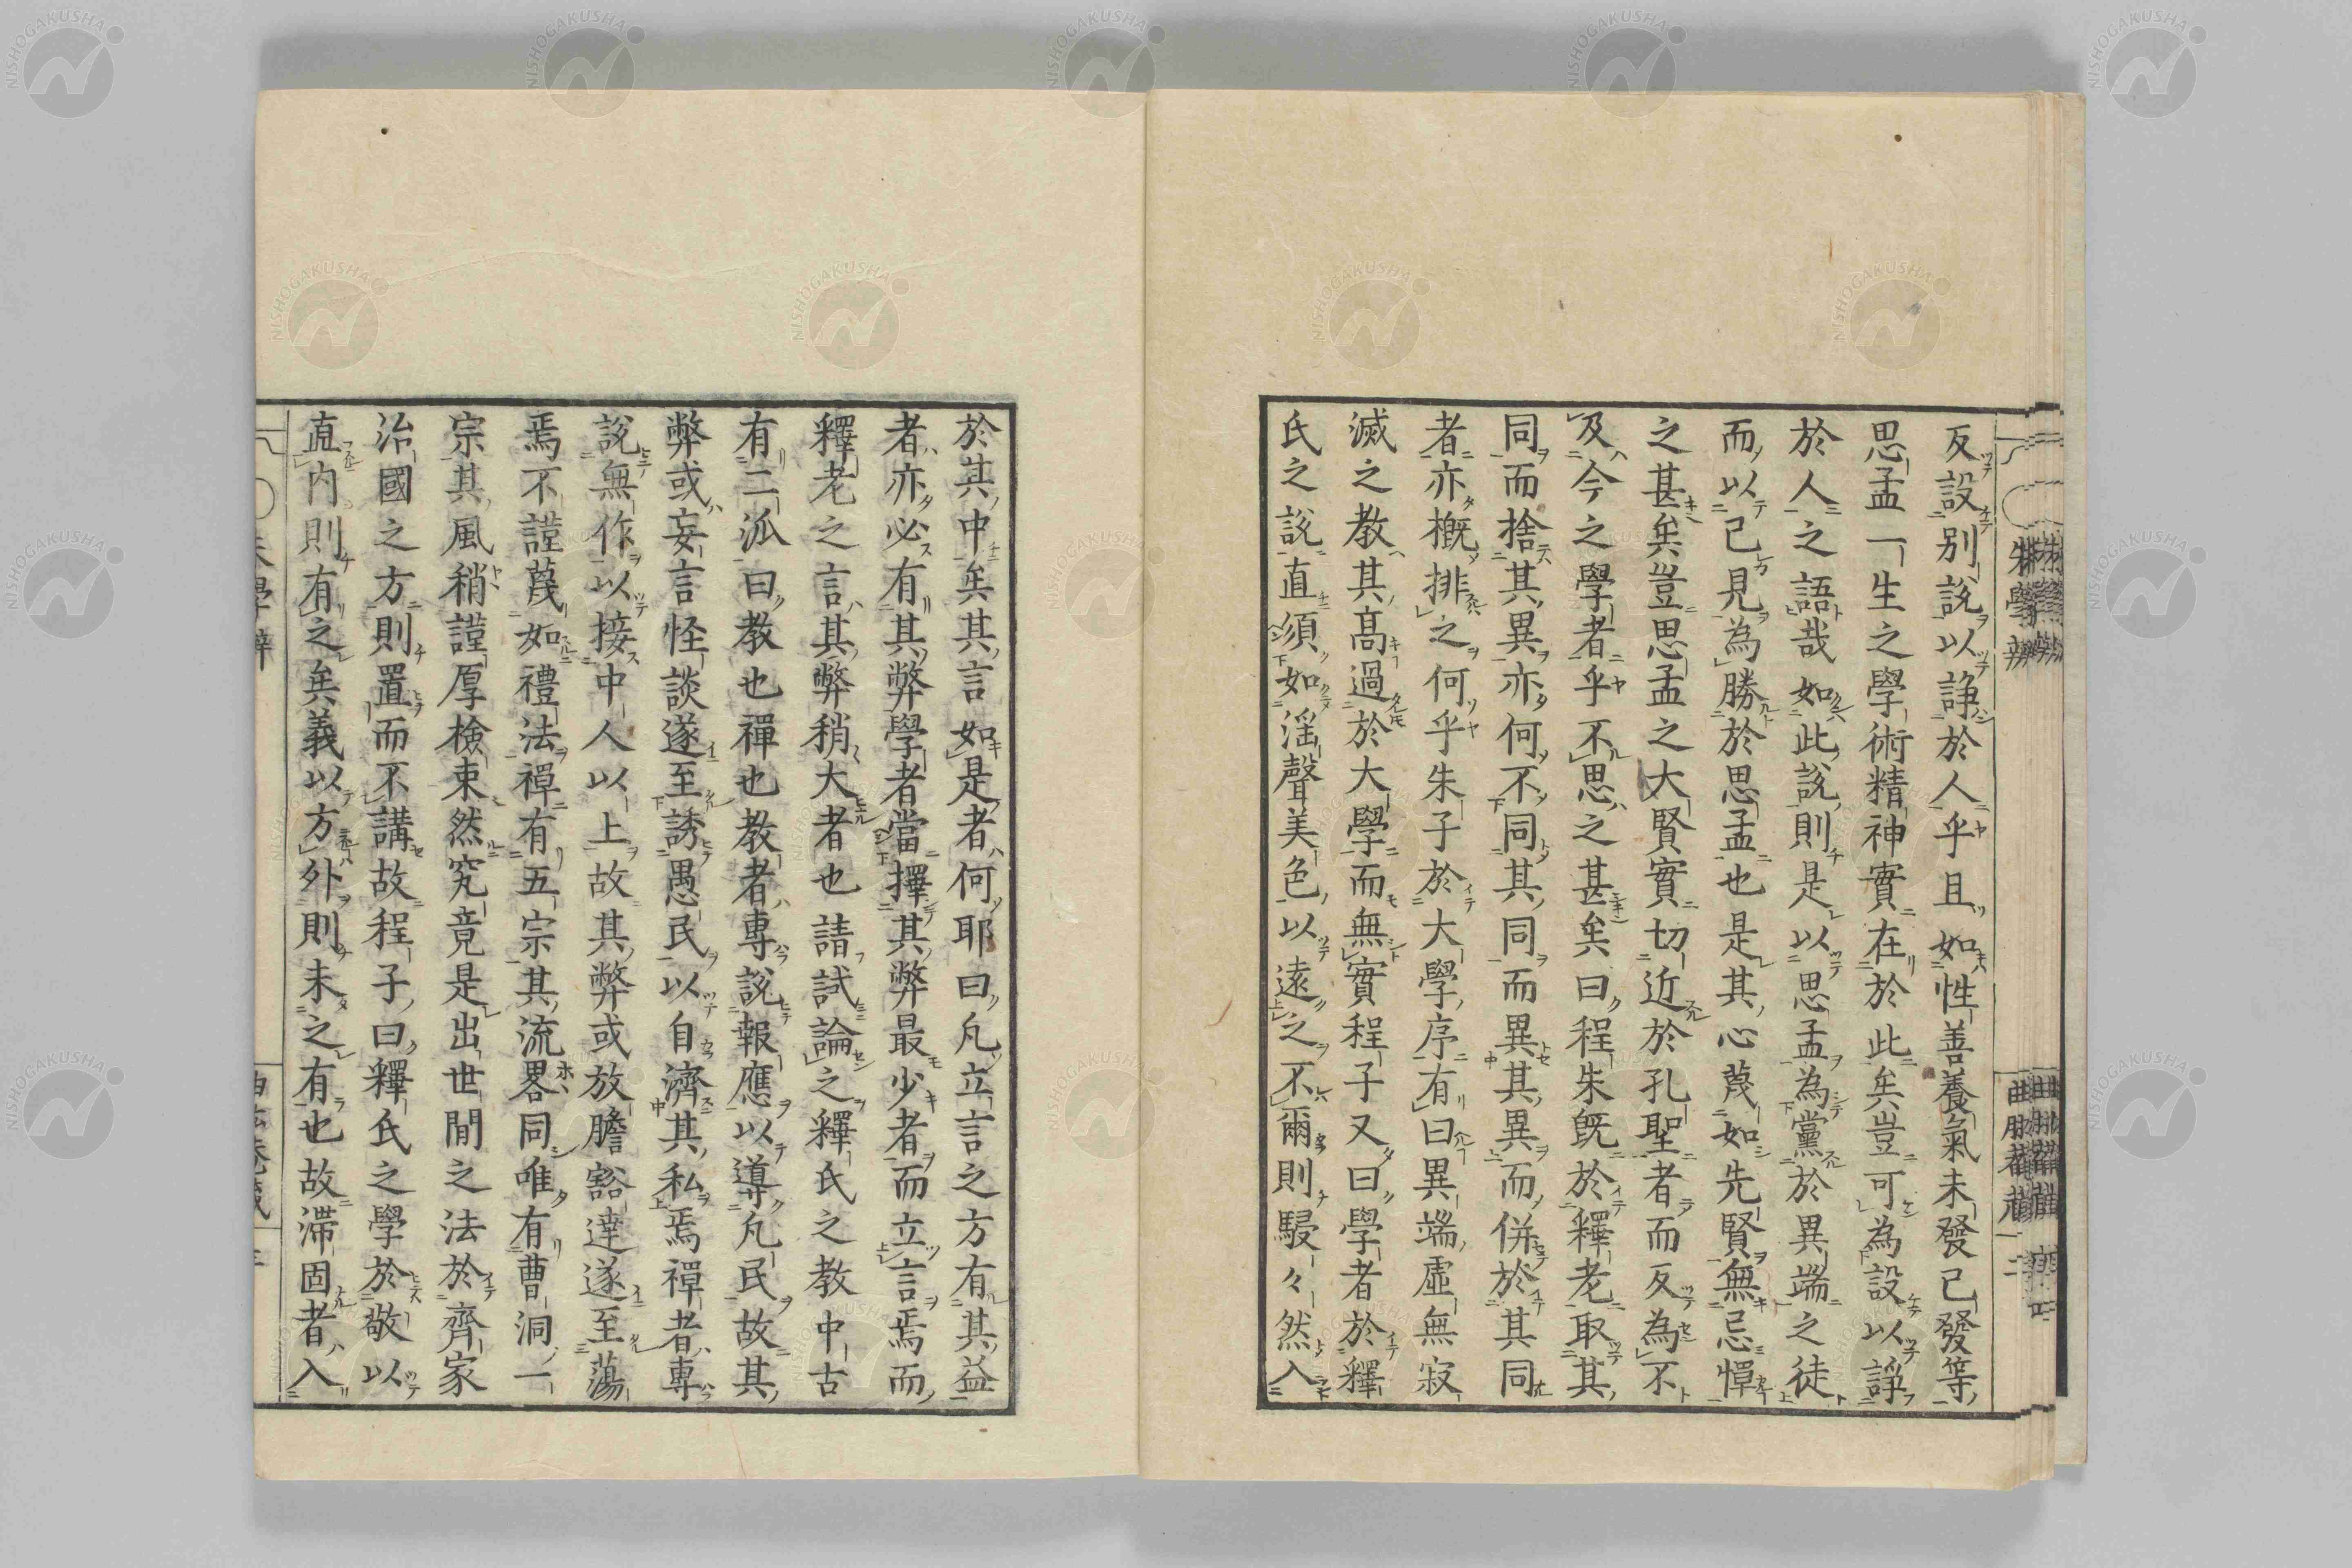 反設別說以諍於人乎且如性善養氣未發已發等
思孟一生之學術精神實在於此矣豈可為設以諍
於人之語哉如此說則是以思孟為黨於異端之徒
而以己見為勝於思孟也是其心蔑如先賢無忌憚
之甚矣豈思孟之大賢實切近於孔聖者而反為不
及今之學者乎不思之甚矣曰程朱既於釋老取其
同而捨其異亦何不同其同而異其異而併於其同
者亦概排之何乎朱子於大學序有曰異端虛無寂
滅之教其高過於大學而無實程子又曰學者於釋
氏之說直須如淫聲美色以遠之不爾則駸々然入
於其中矣其言如是者何耶曰凡立言之方有其益
者亦必有其弊學者當擇其弊最少者而立言焉而
釋老之言其弊稍大者也請試論之釋氏之教中古
有二派曰教也禪也教者專說報應以導凡民故其
弊或妄言怪談遂至誘愚民以自濟其私焉禪者專
說無作以接中人以上故其弊或放膽豁達遂至蕩
焉不謹蔑如禮法禪有五宗其流畧同唯有曹洞一
宗其風稍謹厚檢束然究竟是出世間之法於齊家
治國之方則置而不講故程子曰釋氏之學於敬以
直內則有之矣義以方外則未之有也故滯固者入
NISHOGAKUSHA